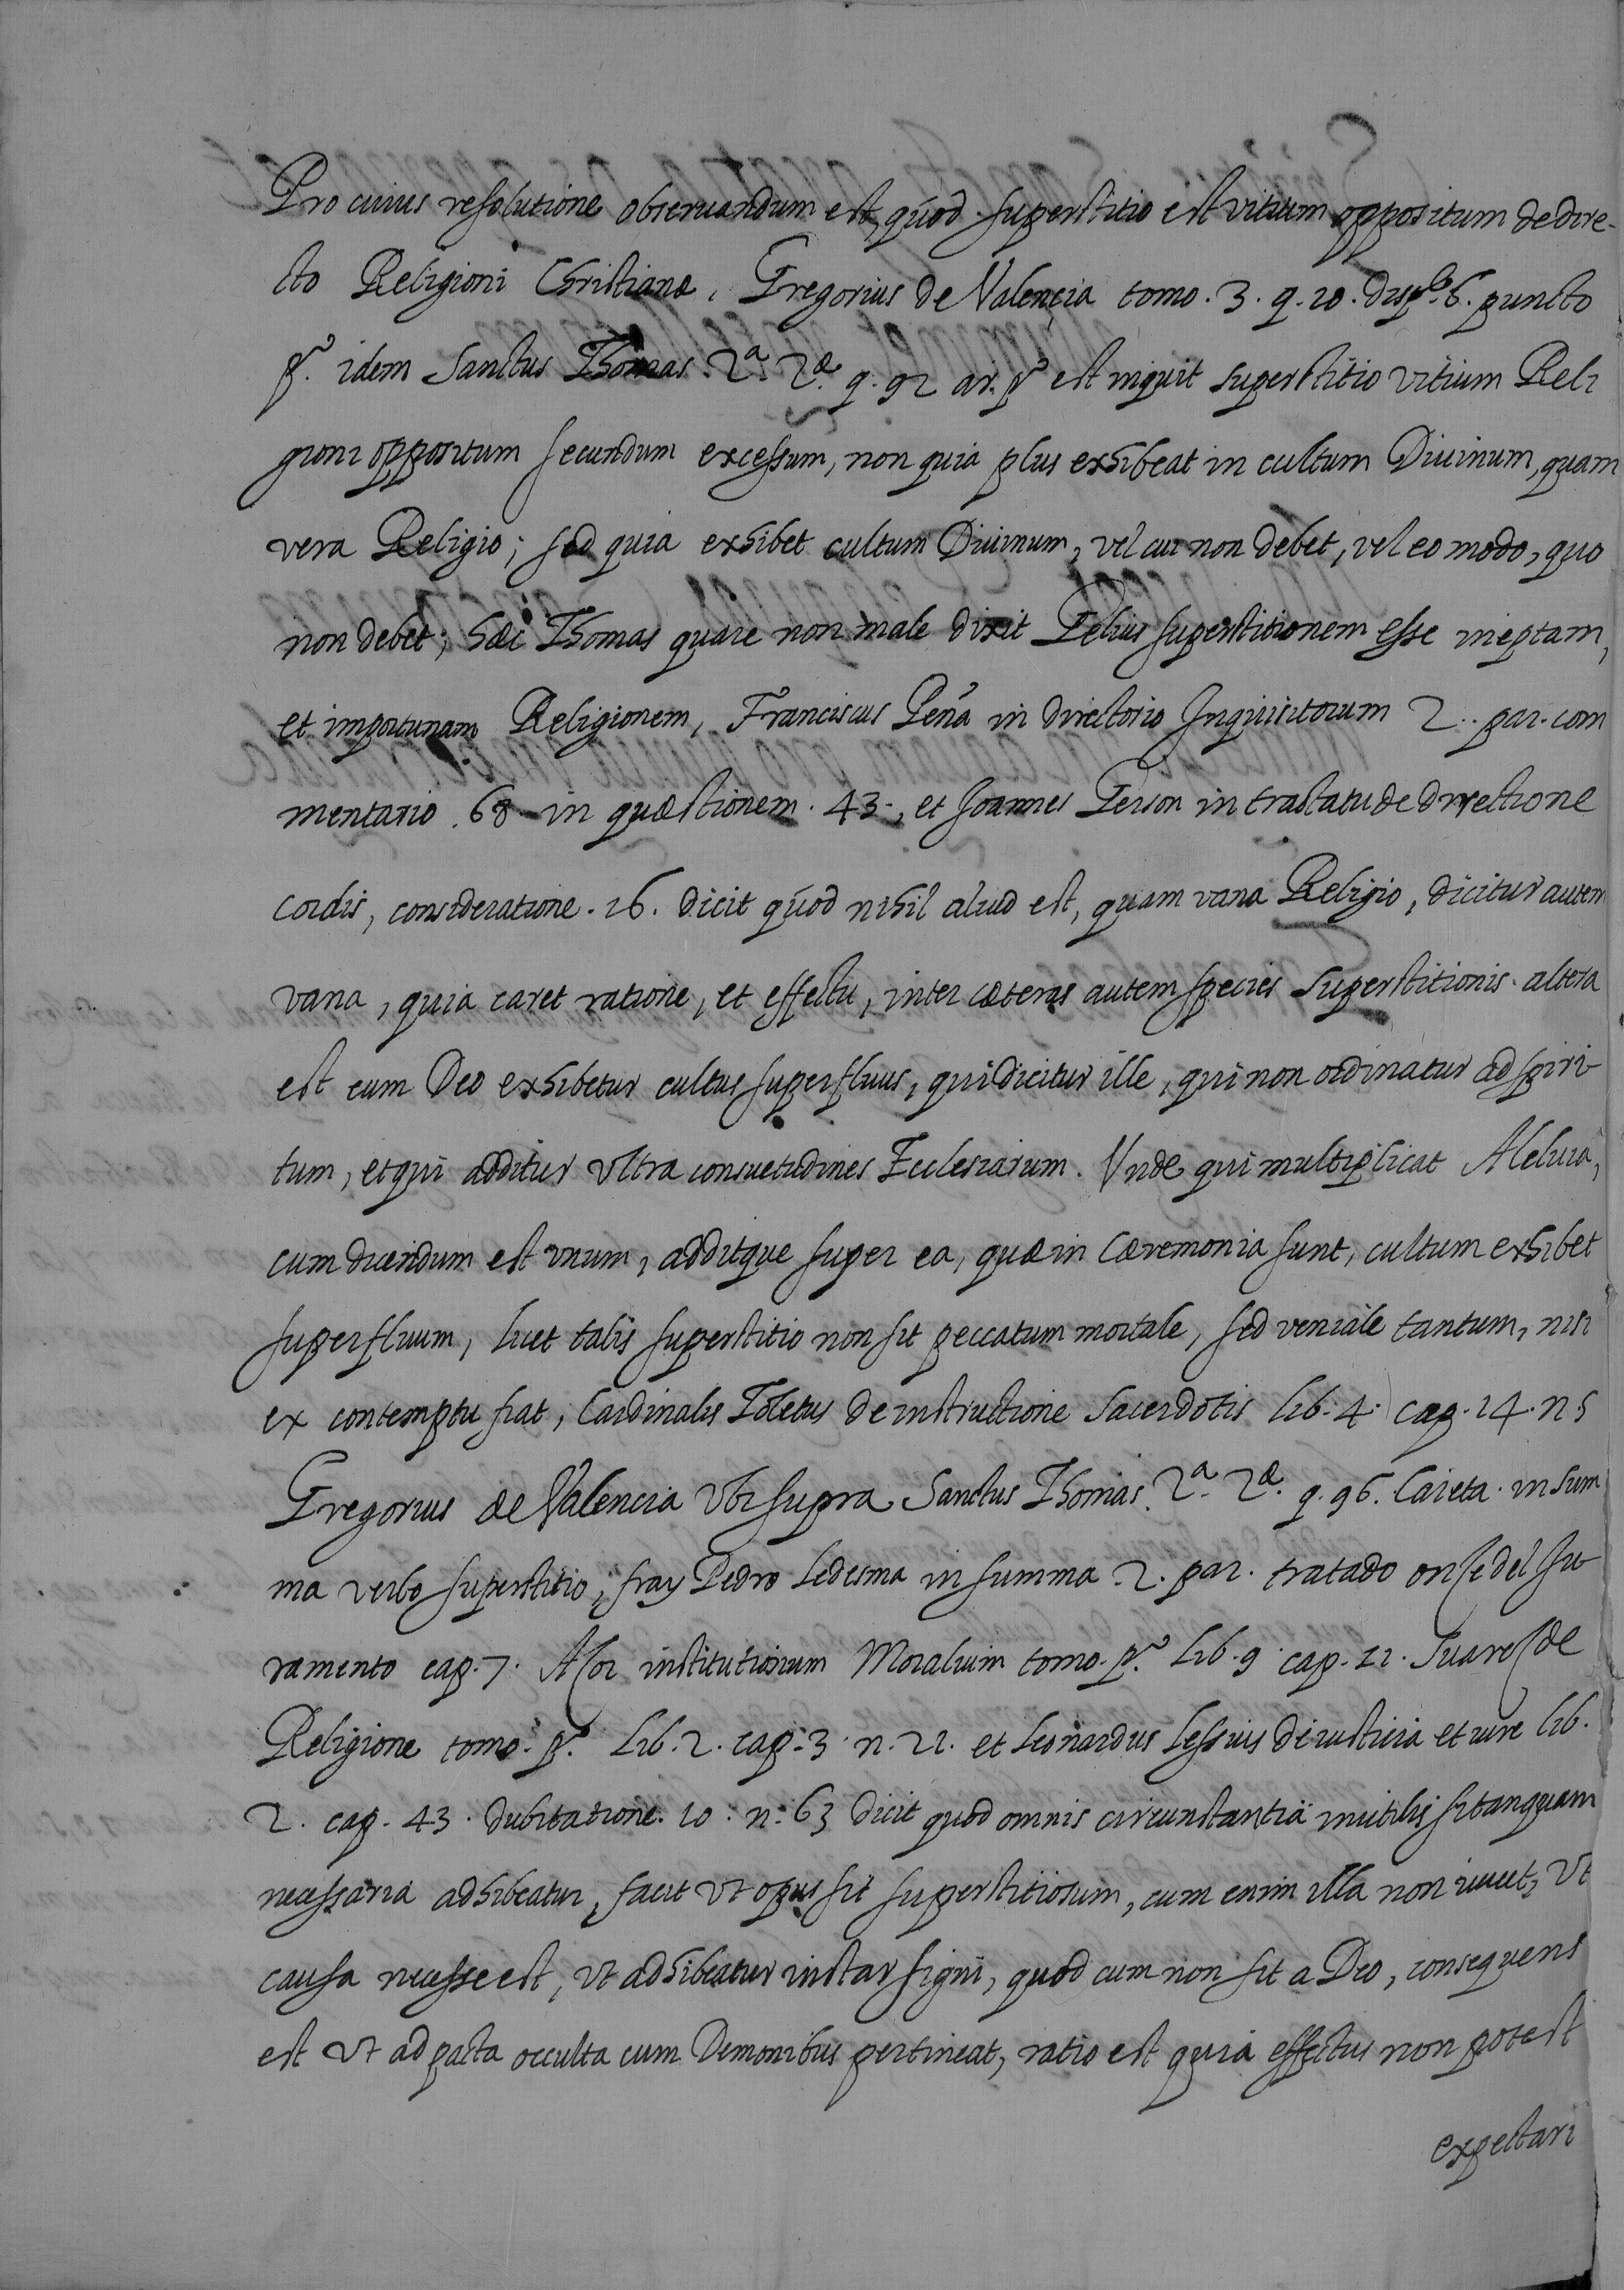 Pro cuius resolutione obseruandum est, quòd superstitio est vitium oppositum de dire-
cto Religioni Christianæ. Gregorius de Valencia tomo. 3. q. 10. disp. 6. puncto
p.º idem Sanctus Thomas. 2.ª 2.æ q. 92 ar. p.º est inquit superstitio vitium Reli
gioni oppositum secundum excessum, non quia plus exhibeat in cultum Diuinum, quam
vera Religio; sed quia exhibet cultum Diuinum, vel cui non debet, vel eo modo, quo
non debet; hæc Thomas quare non male dixit Gelius superstitionem esse ineptam,
et importunam Religionem, Franciscus Peña in directorio Inquisitorum 2. par. com
mentario. 68 in quæstionem. 43., et Joannes Gerson in tractatu de directione
cordis, consideratione. 16. dicit quòd nihil aliud est, quam vana Religio, dicitur autem
vana, quia caret ratione, et effectu, inter cæteras autem species superstitionis altera
est cum Deo exhibetur cultus superfluus, qui dicitur ille, qui non ordinatur ad spiri-
tum, et qui additur vltra consuetudines Ecclesiarum. Vnde qui multiplicat Aleluia,
cum dicendum est vnum, additque super ea, quæ in Cæremonia sunt, cultum exhibet
superfluum, licet talis superstitio non sit peccatum mortale, sed veniale tantum, nisi
ex contemptu fiat, Cardinalis Toletus de instructione Sacerdotis lib. 4. cap. 14. n. 5
Gregorius de Valencia vbi supra Sanctus Thomas. 2.ª 2.æ q. 96. Caieta. in sum
ma verbo superstitio, fray Pedro Ledesma in summa. 2. par. tratado onse del Ju-
ramento cap. 7. Asor institutionum Moralium tomo. p.º lib. 9 cap. 11. Suares de
Religione tomo. p.º lib. 2. cap. 3. n. 21. et Leonardus Lessius de iusticia et iure lib.
2. cap. 43. dubitatione. 10. n. 63 dicit quòd omnis circunstantia inutilis si tanquam
necessaria adhibeatur, facit vt opus sit superstitiosum, cum enim illa non iuuet, vt
causa necesse est, vt adhibeatur instar signi, quod cum non sit a Deo, consequens
est vt ad pacta occulta cum Demonibus pertineat, ratio est quia effectus non potest
expectari